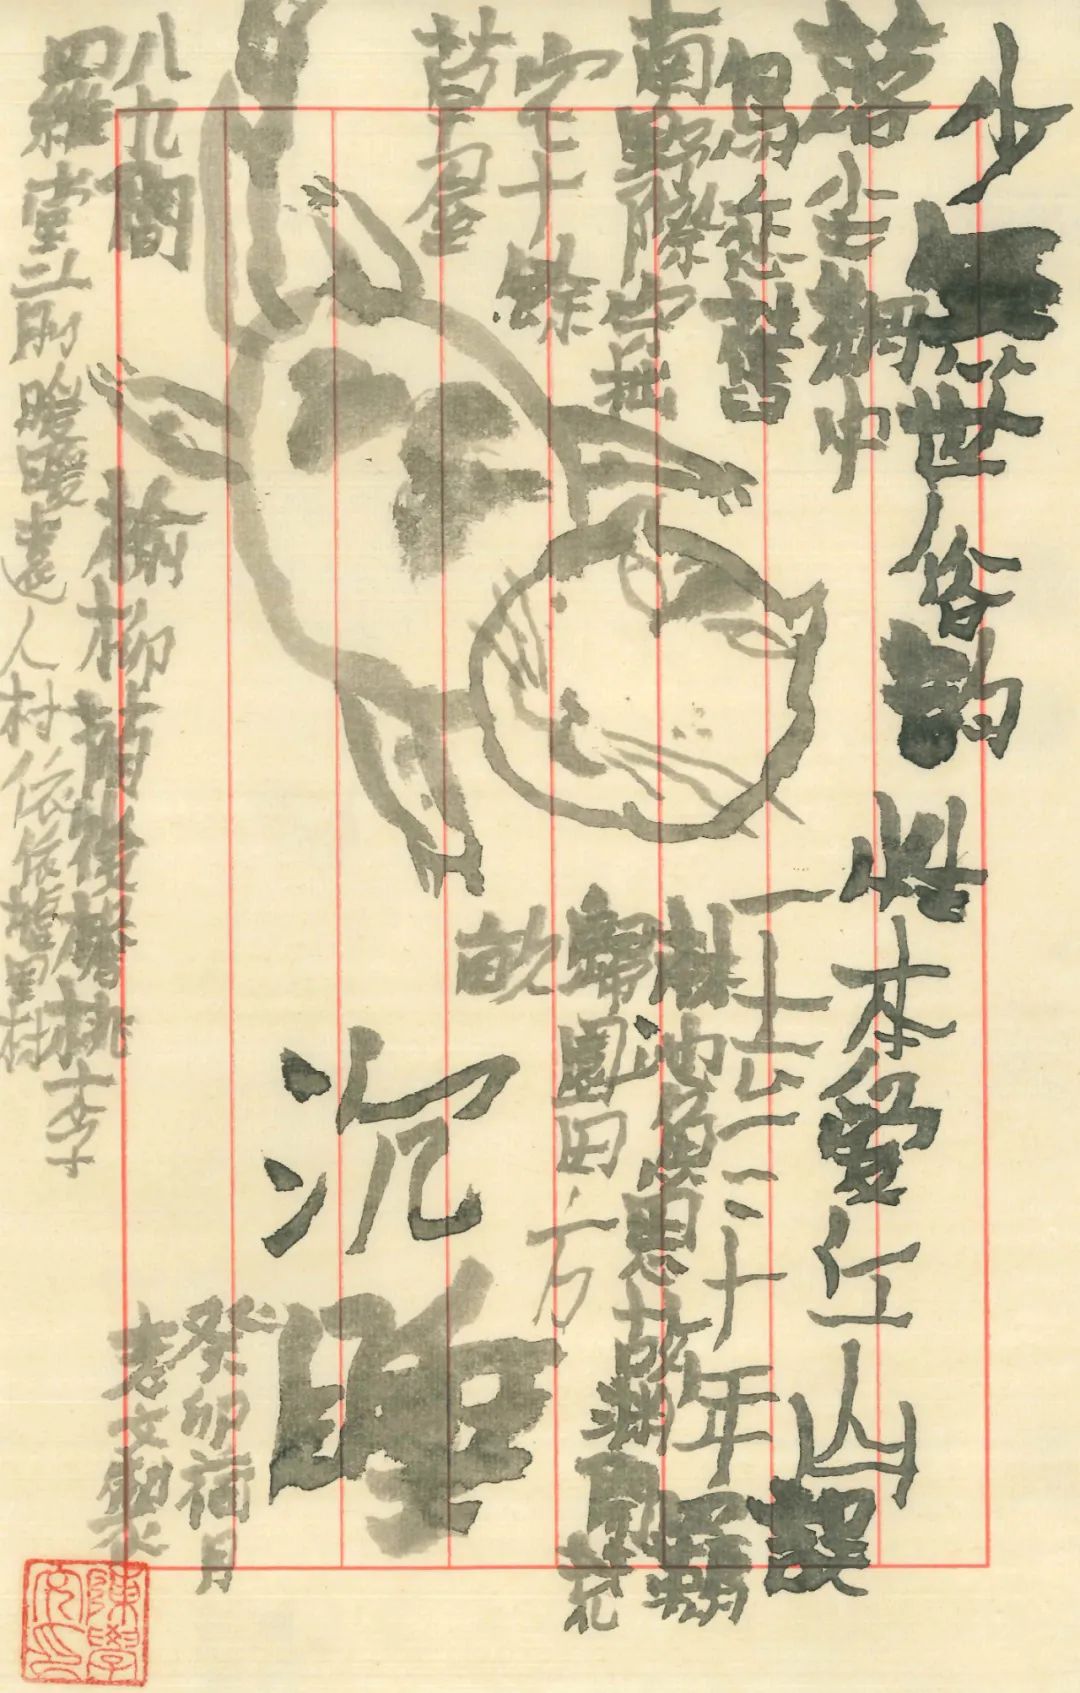 少無世俗韵性本愛丘山誤
落尘網中一去三十年羈
鳥恋舊林池魚思故淵開荒
南野際守拙歸園田方
宅十餘畝
草屋
八九間榆柳荫後檐桃李
羅堂前曖曖遠人村依依墟里村
沉睡
癸卯荷月
陳學文印